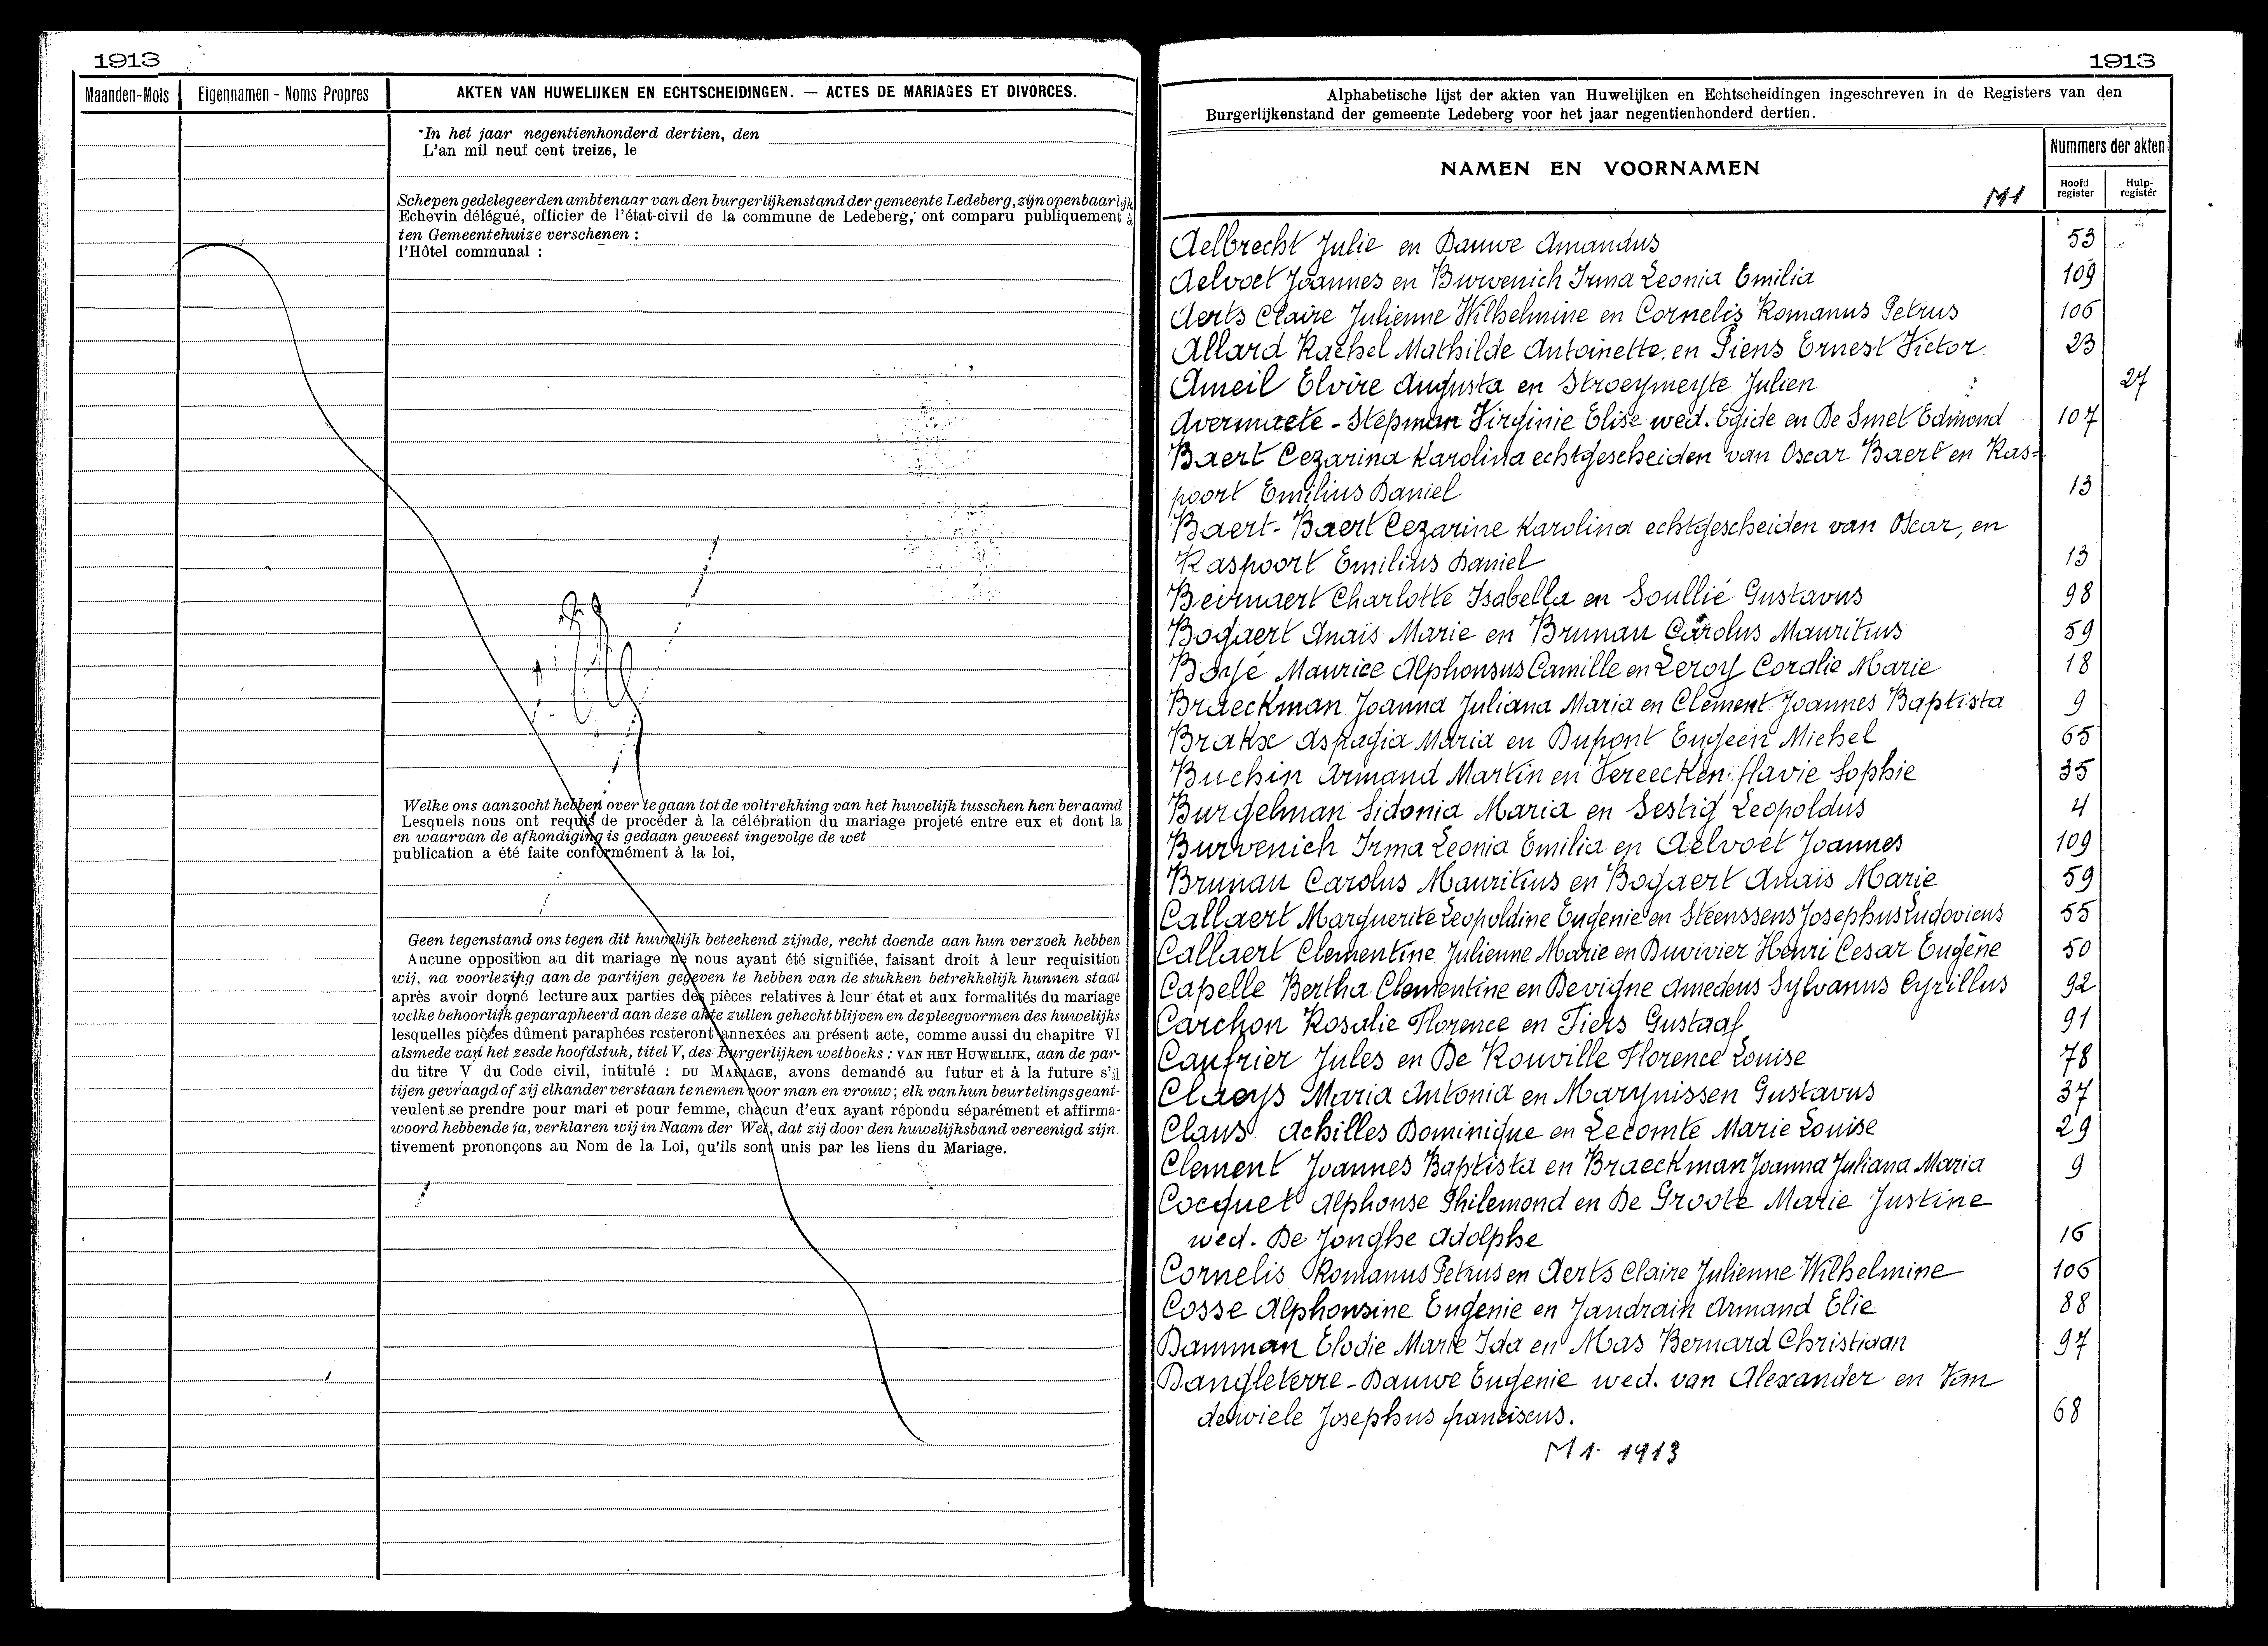 1913
Maanden-Mois
Eigennamen - Noms Propres
AKTEN VAN HUWELIJKEN EN ECHTSCHEIDINGEN. — ACTES DE MARIAGES ET DIVORCES.
In het jaar negentienhonderd dertien, den
L'an mil neuf cent treize, le
Schepen gedelegeerden ambtenaar van den burgerlijkenstand der gemeente Ledeberg, zijn openbaarlijk
Echevin délégué, officier de l'état-civil de la commune de Ledeberg, ont comparu publiquement à
ten Gemeentehuize verschenen :
l'Hôtel communal :
Welke ons aanzocht hebben over te gaan tot de voltrekking van het huwelijk tusschen hen beraamd
Lesquels nous ont requis de procéder à la célébration du mariage projeté entre eux et dont la
en waarvan de afkondiging is gedaan geweest ingevolge de wet
publication a été faite conformément à la loi,
Geen tegenstand ons tegen dit huwelijk beteekend zijnde, recht doende aan hun verzoek hebben
Aucune opposition au dit mariage ne nous ayant été signifiée, faisant droit à leur requisition
wij, na voorlezing aan de partijen gegeven te hebben van de stukken betrekkelijk hunnen staat
après avoir donné lecture aux parties des pièces relatives à leur état et aux formalités du mariage
welke behoorlijk geparapheerd aan deze akte zullen gehecht blijven en de pleegvormen des huwelijks
lesquelles pièces dûment paraphées resteront annexées au présent acte, comme aussi du chapitre VI
alsmede van het zesde hoofdstuk, titel V, des Burgerlijken wetboeks : VAN HET HUWELIJK, aan de par-
du titre V du Code civil, intitulé : DU MARIAGE, avons demandé au futur et à la future s'il
tijen gevraagd of zij elkander verstaan te nemen voor man en vrouw ; elk van hun beurtelings geant-
veulent se prendre pour mari et pour femme, chacun d'eux ayant répondu séparément et affirma-
woord hebbende ja, verklaren wij in Naam der Wet, dat zij door den huwelijksband vereenigd zijn.
tivement prononçons au Nom de la Loi, qu'ils sont unis par les liens du Mariage.
1913
Alphabetische lijst der akten van Huwelijken en Echtscheidingen ingeschreven in de Registers van den
Burgerlijkenstand der gemeente Ledeberg voor het jaar negentienhonderd dertien.
NAMEN EN VOORNAMEN
M1
Nummers der akten
Hoofd register
Hulp-register
Aelbrecht Julie en Dauwe Amandus 53
Aelvoet Joannes en Burvenich Irma Leonia Emilia 109
Aerts Claire Julienne Wilhelmine en Cornelis Romanus Petrus 106
Allard Rachel Mathilde Antoinette en Piens Ernest Victor 23
Ameil Elvire Augusta en Stroeymeyte Julien 27
Avermaete - Stepman Virginie Elise wed. Egide en De Smet Edmond 107
Baert Cezarina Karolina echtgescheiden van Oscar Baert en Ras-
poort Emilius Daniel 13
Baert - Baert Cezarine Karolina echtgescheiden van Oscar, en
Raspoort Emilius Daniel 13
Beirnaert Charlotte Isabella en Soullié Gustavus 98
Bogaert Anaïs Marie en Brunau Carolus Mauritius 59
Boyé Maurice Alphonsus Camille en Leroy Coralie Marie 18
Braeckman Joanna Juliana Maria en Clement Joannes Baptista 9
Brakx Aspagia Maria en Dupont Eugeen Michel 65
Buchin Armand Martin en Vereecken flavie Sophie 35
Burgelman Sidonia Maria en Sestig Leopoldus 4
Burvenich Irma Leonia Emilia en Aelvoet Joannes 109
Brunau Carolus Mauritius en Bogaert Anaïs Marie 59
Callaert Marguerite Leopoldine Eugenie en Steenssens Josephus Ludovicus 55
Callaert Clementine Julienne Marie en Duvivier Henri Cesar Eugène 50
Capelle Bertha Clementine en Devigne Amedeus Sylvanus Cyrillus 92
Carchon Rosalie Florence en Fiers Gustaaf 91
Caufrier Jules en De Rouville Florence Louise 78
Claeys Maria Antonia en Marynissen Gustavus 37
Claus Achilles Dominique en Lecomte Marie Louise 29
Clement Joannes Baptista en Braeckman Joanna Juliana Maria 9
Cocquet Alphonse Philemond en De Groote Marie Justine
wed. De Jonghe Adolphe 16
Cornelis Romanus Petrus en Aerts Claire Julienne Wilhelmine 106
Cosse Alphonsine Eugenie en Jandrain Armand Elie 88
Damman Elodie Marie Ida en Mas Bernard Christiaan 97
Dangleterre - Dauwe Eugenie wed. van Alexander en Van
dewiele Josephus franciscus. 68
M1- 1913